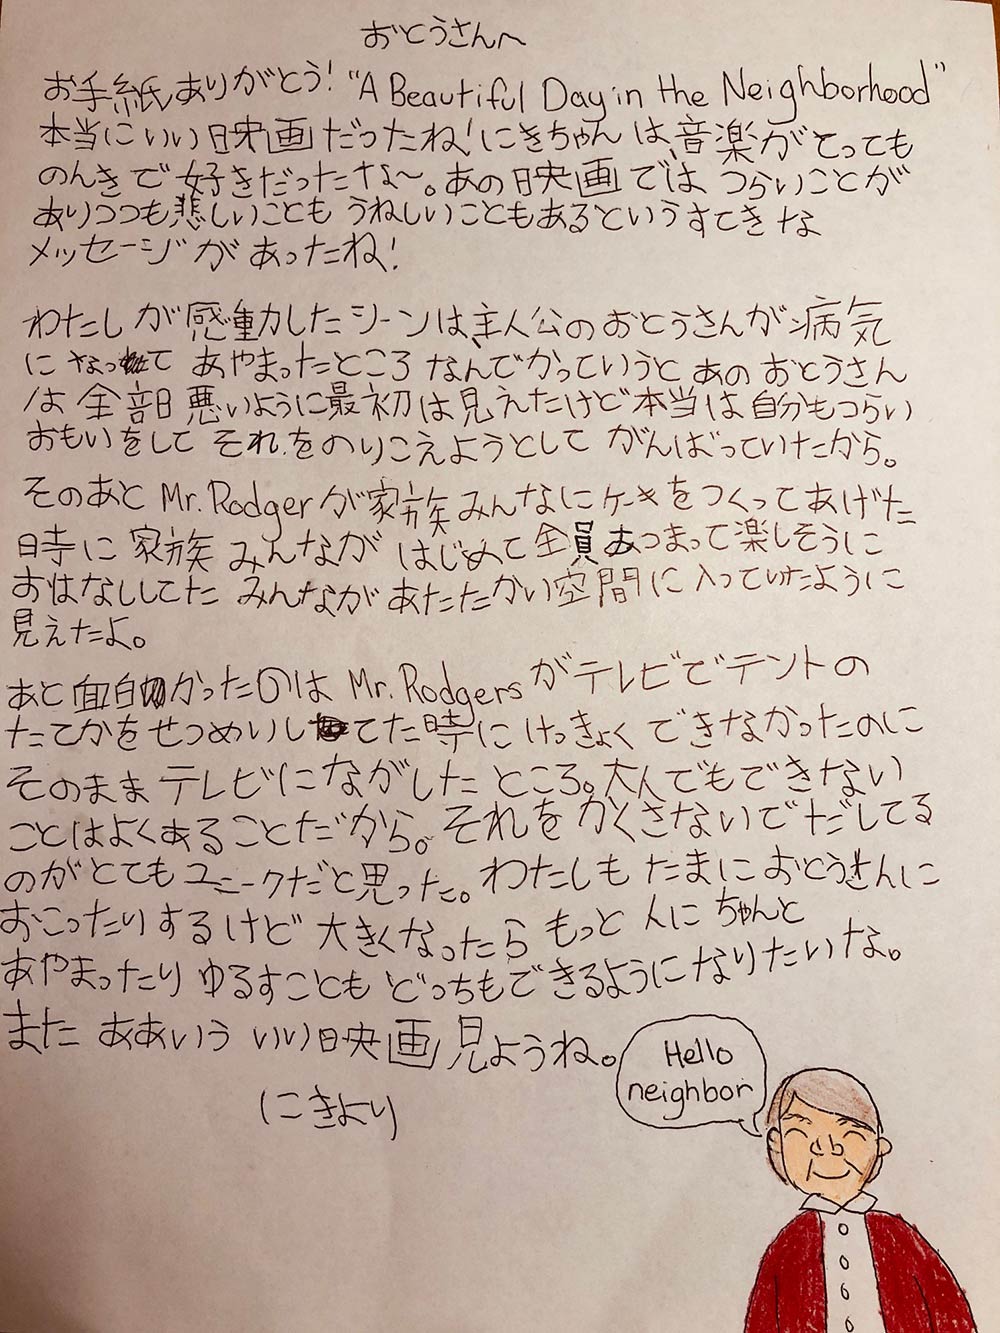 おとうさんへ
お手紙ありがとう！"A Beautiful Day in the Neighborhood"
本当にいい映画だったね！にきちゃんは、音楽がとっても
のんきで好きだったな〜。あの映画では つらいことが
ありつつも悲しいことも うれしいこともあるというすてきな
メッセージがあったね！
わたしが感動したシーンは、主人公のおとうさんが病気
になって あやまったところ なんでかっていうと あのおとうさん
は全部悪いように最初は見えたけど本当は自分もつらい
おもいをして それをのりこえようとして がんばっていたから。
そのあと Mr. Rodgerが家族みんなにケーキをつくってあげた
時に家族みんなが はじめて全員あつまって楽しそうに
おはなししてた みんながあたたかい空間に入っていたように
見えたよ。
あと面白かったのは Mr. Rodgersがテレビでテントの
たてかをせつめいしてた時に けっきょくできなかったのに
そのままテレビにながしたところ。大人でもできない
ことはよくあることだから。それをかくさないでだしてる
のがとてもユニークだと思った。わたしもたまにおとうさんに
おこったりするけど 大きくなったら もっと人にちゃんと
あやまったり ゆるすことも どっちもできるようになりたいな。
また ああいう いい映画見ようね。
にきより
Hello
neighbor